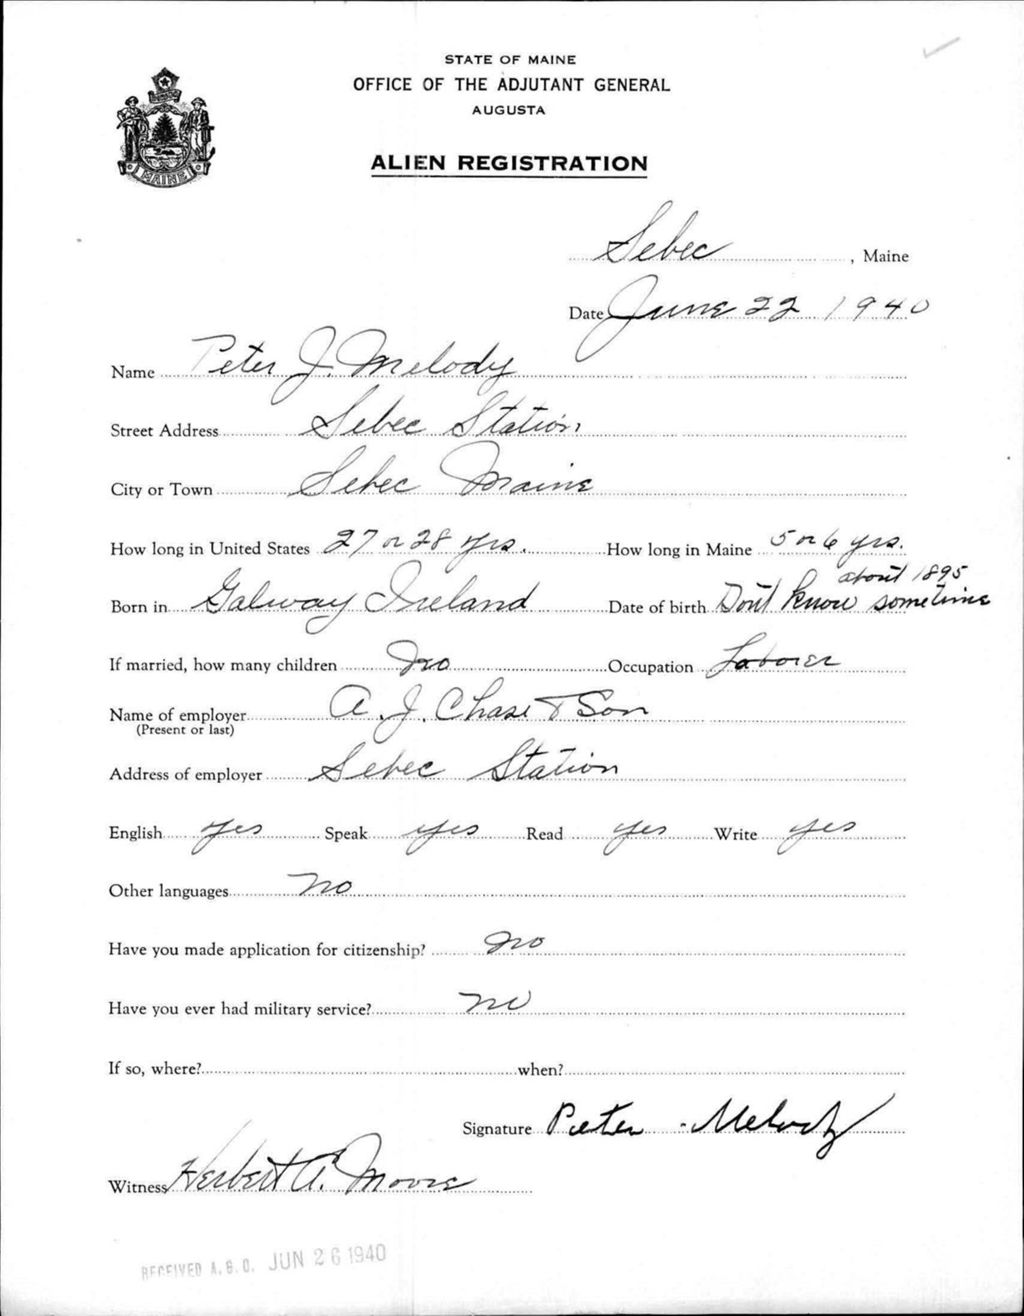 STATE OF MAINE
OFFICE OF THE ADJUTANT GENERAL
AUGUSTA
ALIEN REGISTRATION
MAINE
Sebec, Maine
Date June 22 1940
Name Peter J. Melody
Street Address Sebec Station
City or Town Sebec Maine
How long in United States 27 or 28 yrs. How long in Maine 5 or 6 yrs.
about 1895
Born in Galway Ireland Date of birth Don't know sometime
If married, how many children No Occupation Laborer
Name of employer A. J. Chase & Son
(Present or last)
Address of employer Sebec Station
English yes Speak yes Read yes Write yes
Other languages no
Have you made application for citizenship? no
Have you ever had military service? no
If so, where? when?
Signature Peter - Melody
Witness Herbert A. Moore
RECEIVED A.G.O. JUN 26 1940